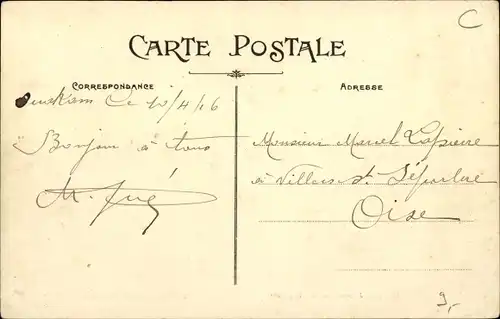 C
CARTE POSTALE
CORRESPONDANCE
ADRESSE
Ce 10/4/16
Bonjour à tous
Monsieur Marcel Lapierre
à Villers St. Sépulcre
Oise
9,-